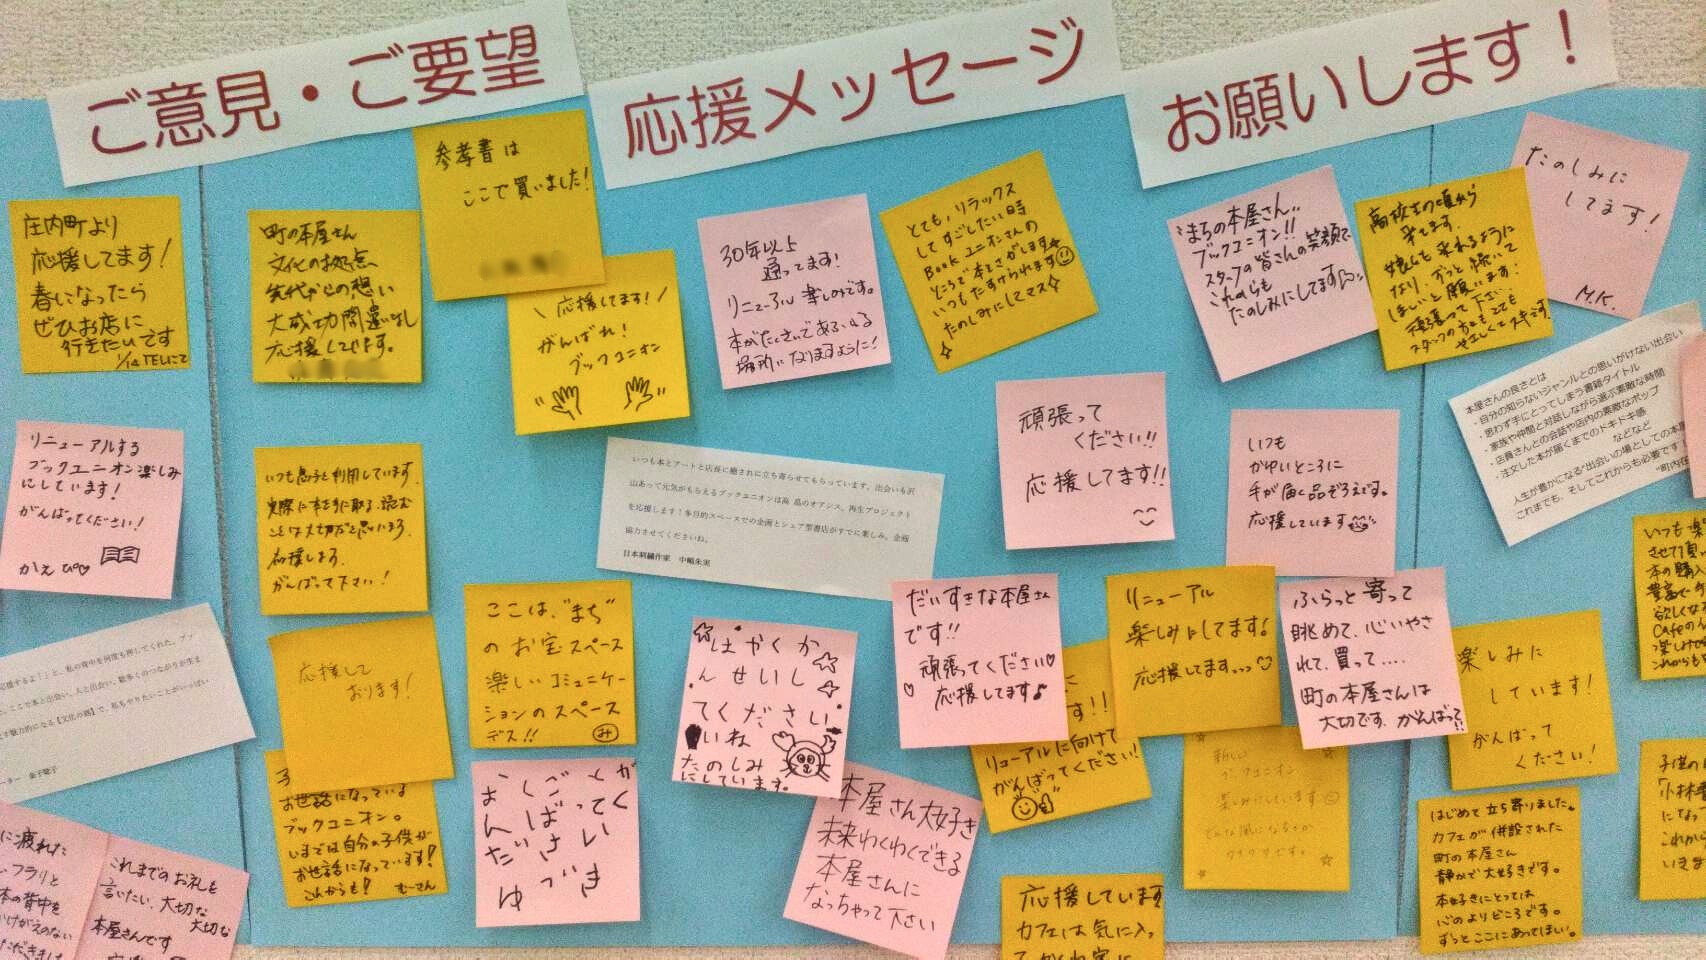 ご意見・ご要望
応援メッセージ
お願いします！
庄内町より
応援してます!
春になったら
ぜひお店に
行きたいです
1/14 TELにて
町の本屋さん
文化の拠点、
先代からの想い
大成功間違いなし
応援してます。
参考書は
ここで買いました!
\ 応援してます! /
がんばれ!
ブックユニオン
30年以上
通ってます!
リニューアル楽しみです。
本がたくさんであふれる
場所になりますように!
とても、リラックス
してすごしたい時
Book ユニオンさんの
ところで本をさがします
いつもたすけられます
たのしみにしてマス☆
まちの本屋さん
ブックユニオン!!
スタッフの皆さんの笑顔で
これからも
たのしみにしてます
高校生の頃から
来てます。
娘らも来れるように
なり、ずっと続いて
ほしいと願います!
頑張って下さい。
スタッフの方もとても
やさしくてスキです。
たのしみに
してます!
M.K.
リニューアルする
ブックユニオン楽しみ
にしています!
がんばってください!
かえぴ♡
いつも息子と利用しています。
実際に本を手に取る、読む
ことは大切だと思います。
応援します。
がんばって下さい!
いつも本とアートと店長に癒されに立ち寄らせてもらっています。出会いも沢
山あって元気がもらえるブックユニオンは高畠のオアシス。再生プロジェクト
を応援します！多目的スペースでの企画とシェア型書店がすでに楽しみ。企画
協力させてくださいね。
日本刺繍作家 中嶋朱実
頑張って
ください!!
応援してます!!
いつも
かゆいところに
手が届く品ぞろえです。
応援しています
本屋さんの良さとは
・自分の知らないジャンルとの思いがけない出会い
・思わず手にとってしまう書籍タイトル
・家族や仲間と対話しながら選ぶ素敵な時間
・店員さんとの会話や店内の素敵なポップ
・注文した本が届くまでのドキドキ感
などなど
人生が豊かになる“出会いの場としての本屋
これまでも、そしてこれからも必要です
“町内在
応援するよ！」と、私の背中を何度も押してくれた。ブッ
。ここで本と出会い、人と出会い、数多くのつながりが生ま
す魅力的になる【文化の砦】で、私もやりたいことがいっぱい
ーター 金子敬子
応援して
おります!
ここは、“まち”
のお宝スペース
楽しいコミュニケー
ションのスペース
デス!! み
はやくか
んせいし
てくださ
いね
たのしみ
にしています。
だいすきな本屋さん
です!!
頑張ってください♡
♡応援してます♪
リニューアル
楽しみにしてます!
応援してます...
ふらっと寄って
眺めて、心いやさ
れて、買って....
町の本屋さんは
大切です。がんばって!
楽しみに
しています!
がんばって
ください!
いつも楽
させて頂い
本の購入
豊富で
欲しくなる
Cafeの
楽しみで
これからも
に
す!!
リニューアルに向けて
がんばってください!
新しい
ブックユニオン
楽しみにしています
どんな風になるのか
ワクワクです。
お世話になっていま
ブックユニオン。
いまでは自分の子供が
お世話になっています!
これからも! むーさん
ほんごとが
んばってく
ださい
ゆづき
本屋さん大好き
未来わくわくできる
本屋さんに
なっちゃって下さい
応援しています
カフェは気に入っ
はじめて立ち寄りました。
カフェが併設された
町の本屋さん
静かで大好きです。
本好きにとっては
心のよりどころです。
ずっとここにあってほしい。
子供の
「小林
になっ
これから
いきま
に疲れた
、フラリと
本の背中を
かけがえのない
ただきました
これまでのお礼を
言いたい、大切な
大切な
本屋さんです